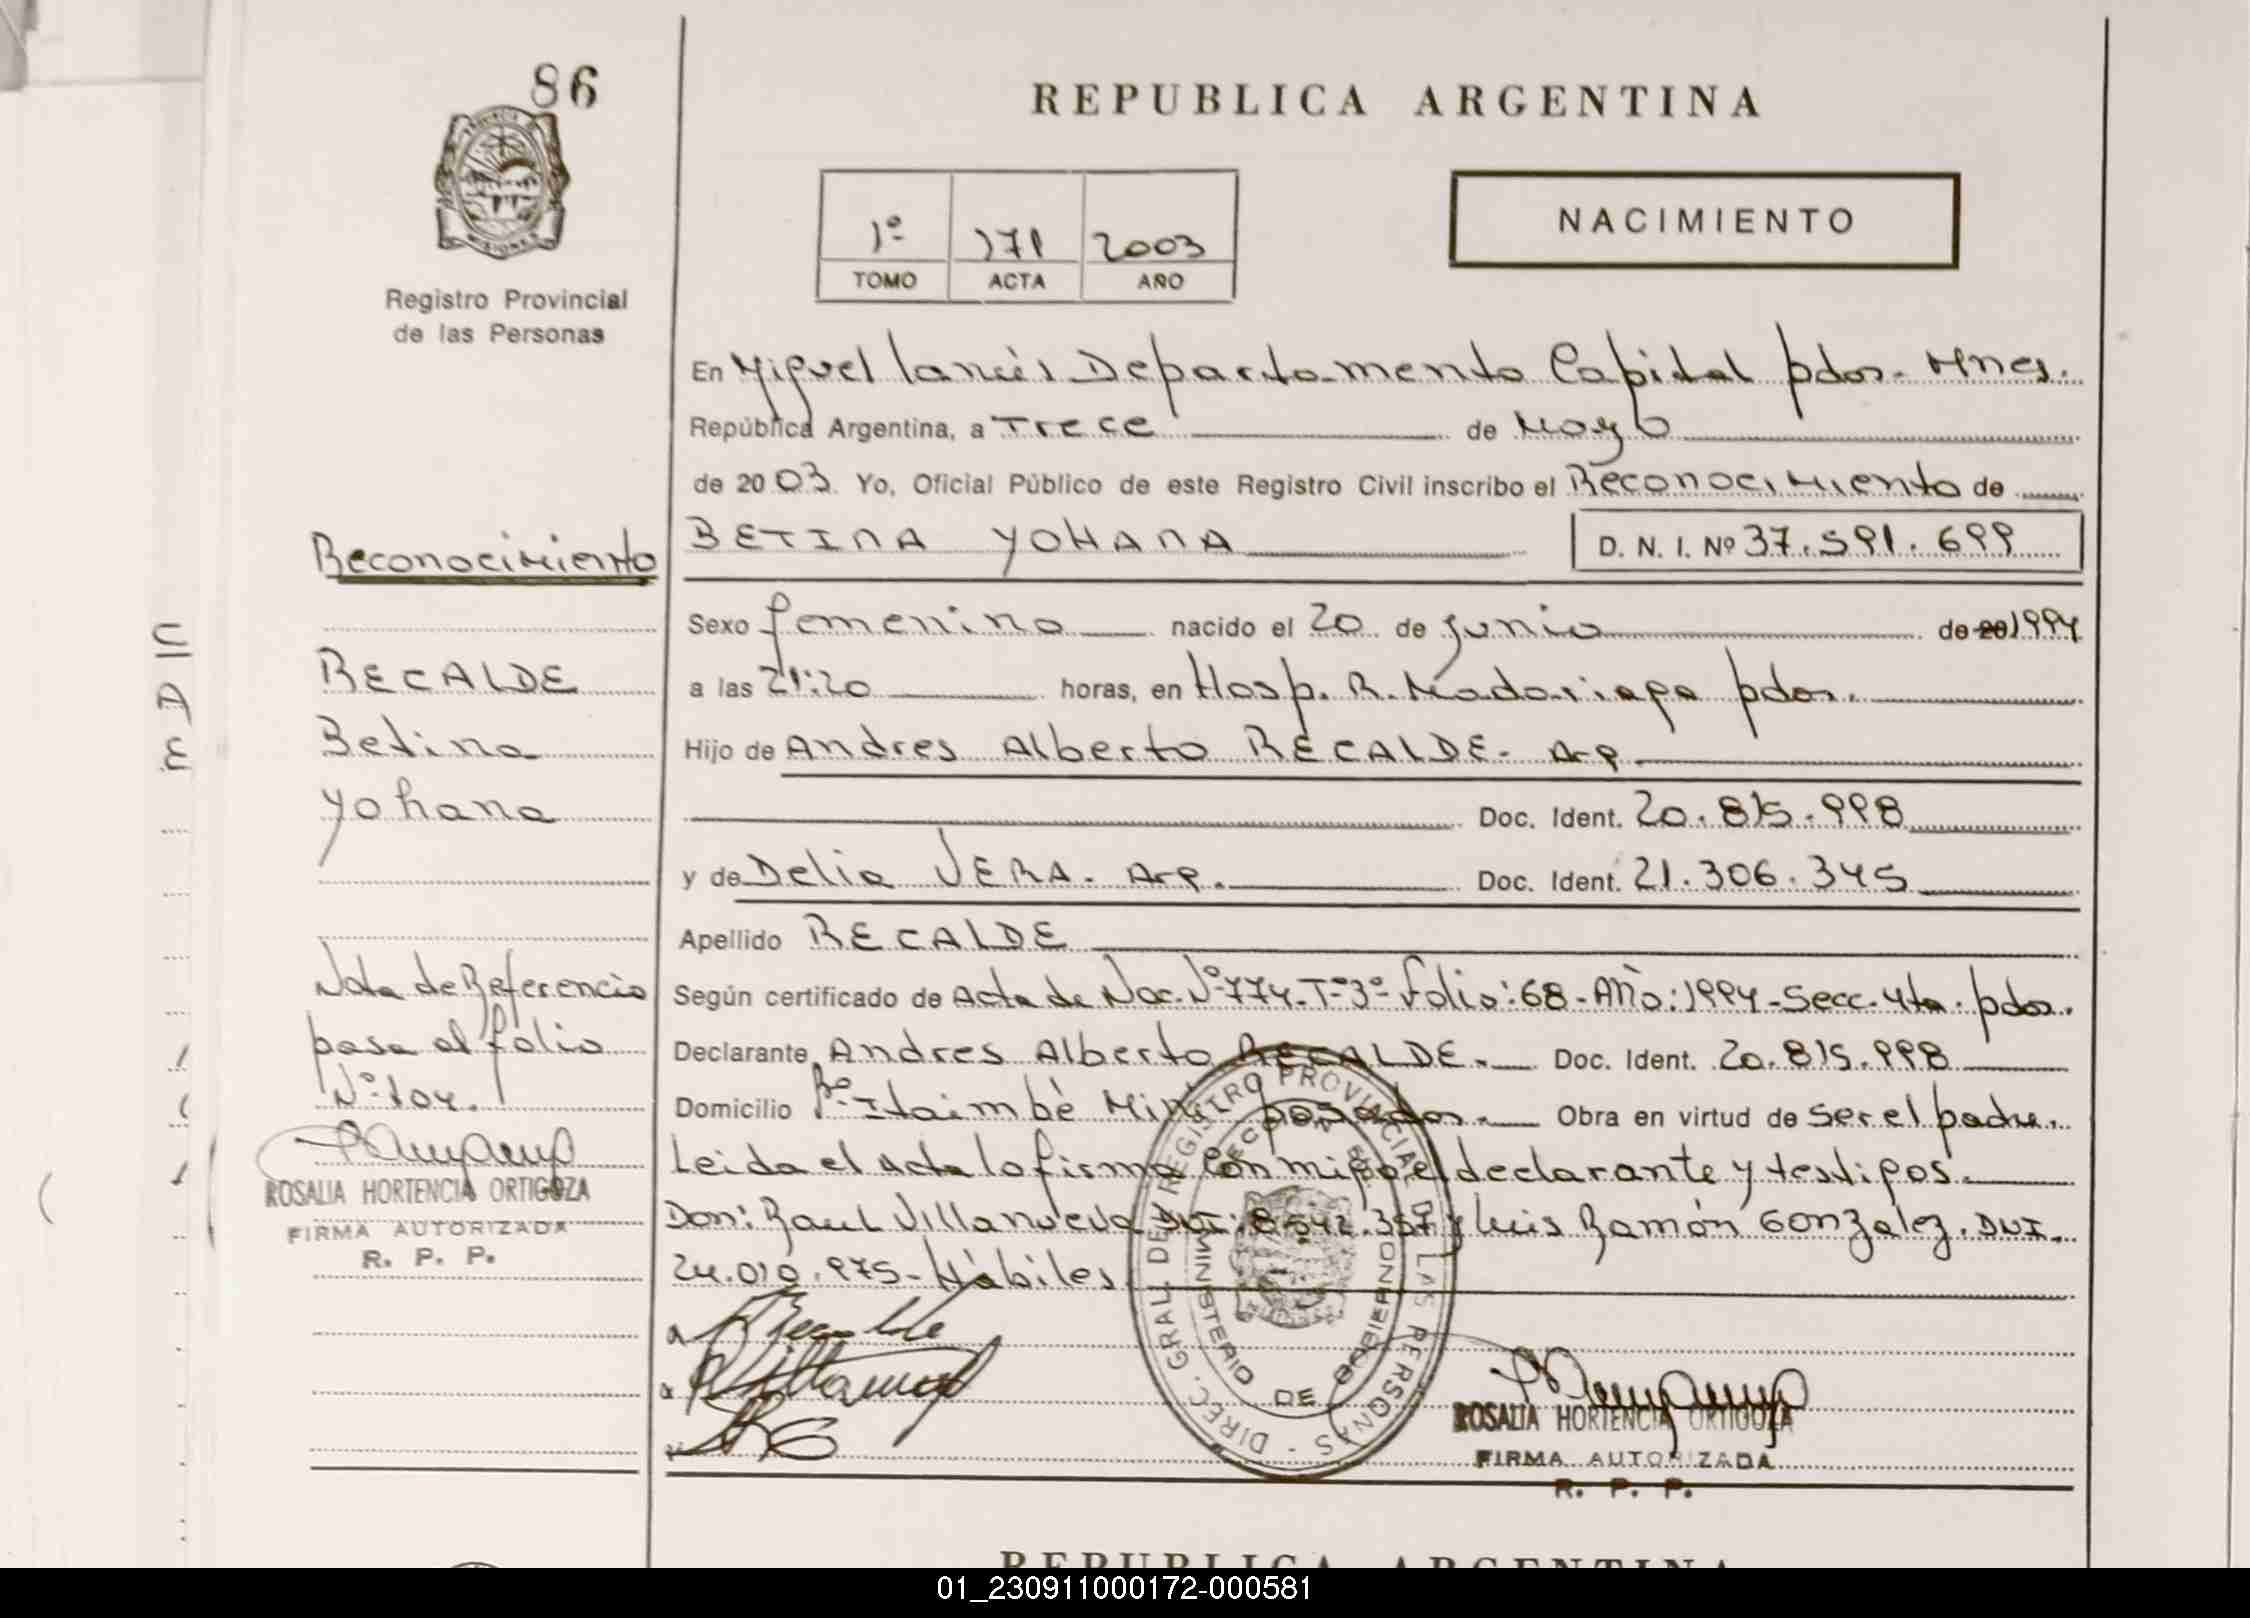 86
REPUBLICA ARGENTINA
1º 171 2003
TOMO ACTA AÑO
NACIMIENTO
MISIONES
Registro Provincial
de las Personas
En Miguel Lanús Departamento Capital pdas. Mnes.
República Argentina, a Trece de Mayo
de 2003. Yo, Oficial Público de este Registro Civil inscribo el Reconocimiento de
Reconocimiento
BETINA YOHANA D. N. I. Nº 37.591.699
Sexo femenino nacido el 20 de junio de 20 1994
RECALDE
a las 21:20 horas, en Hosp. R. Madariaga pdas.
Betina
Hijo de Andres Alberto RECALDE. Arg.
Yohana
Doc. Ident. 20.815.998
y de Delia VERA. Arg. Doc. Ident. 21.306.345
Apellido RECALDE
Nota de Referencia
pasa al folio
Nº 104.
Según certificado de Acta de Nac. Nº 774-Tº 3º folio: 68-Año: 1994-Secc. 4ta. pdas.
Declarante Andres Alberto RECALDE. Doc. Ident. 20.815.998
Domicilio Bº Itaimbé Miní posadas. Obra en virtud de Ser el padre.
Leida el acta lo firma con migo el declarante y testigos.
ROSALIA HORTENCIA ORTIGOZA
FIRMA AUTORIZADA
R. P. P.
Don: Raul Villanueva DNI: 8.542.357 y Luis Ramón Gonzalez. DNI.
24.010.975-Hábiles
DIREC. GRAL. DE REGISTRO PROVINCIAL DE LAS PERSONAS
MINISTERIO DE GOBIERNO
ROSALIA HORTENCIA ORTIGOZA
FIRMA AUTORIZADA
R. P. P.
REPUBLICA ARGENTINA
01_230911000172-000581